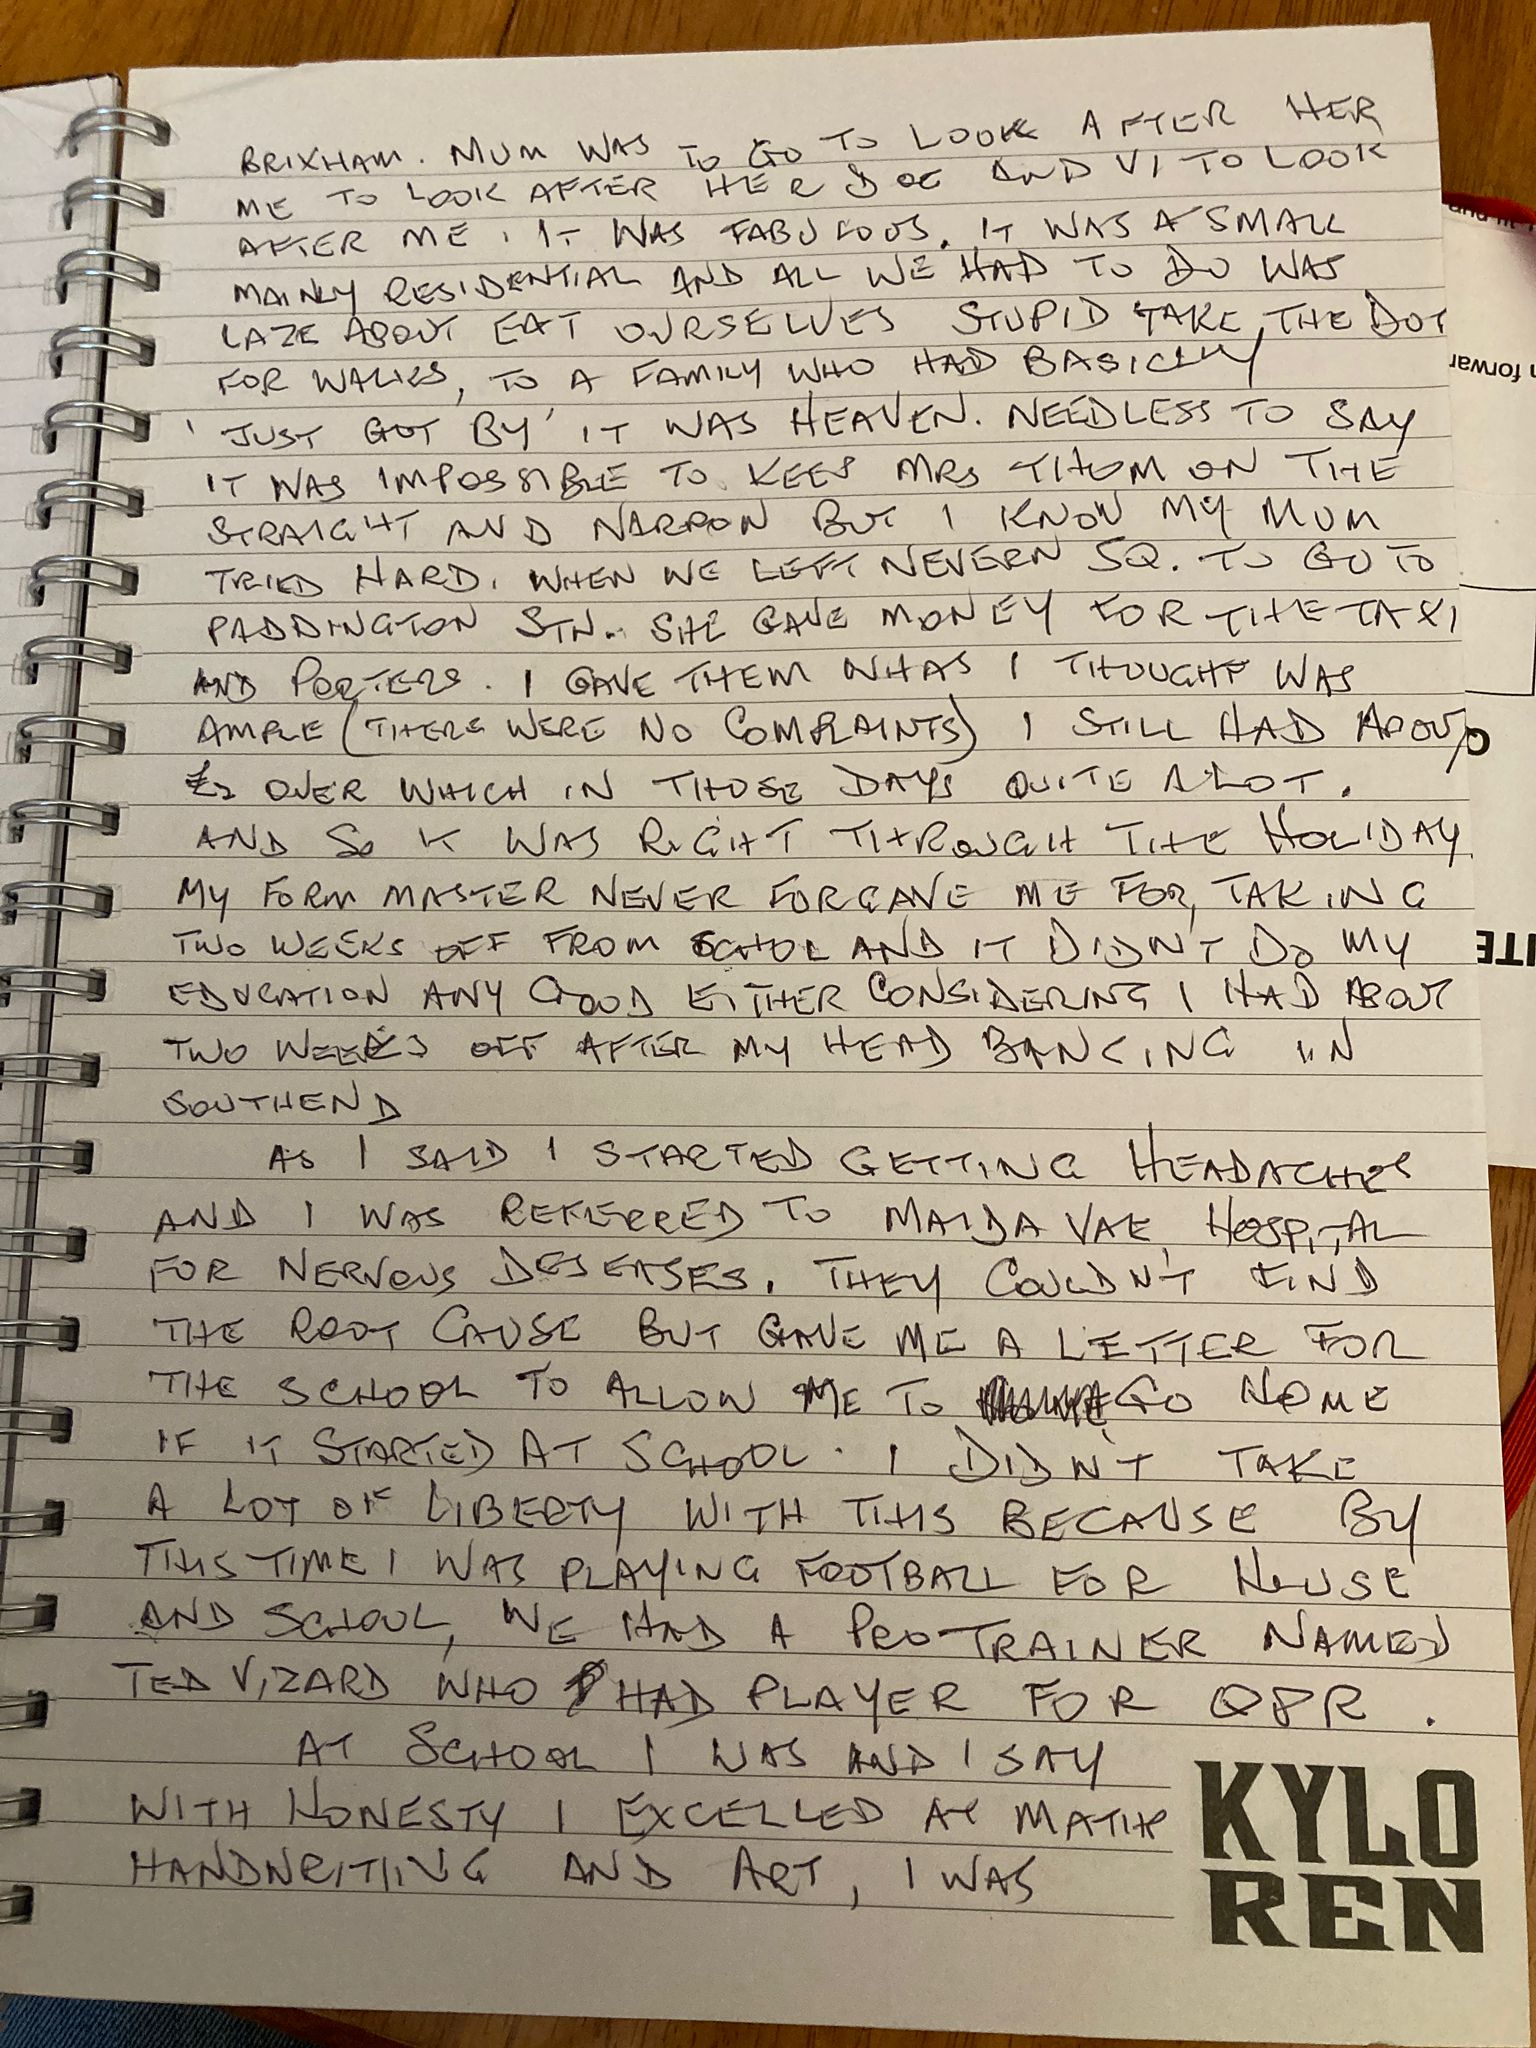 BRIXHAM. MUM WAS TO GO TO LOOK AFTER HER
ME TO LOOK AFTER HER DOG AND VI TO LOOK
AFTER ME. IT WAS FABULOUS. IT WAS A SMALL
MAINLY RESIDENTIAL AND ALL WE HAD TO DO WAS
LAZE ABOUT EAT OURSELVES STUPID TAKE THE DOG
FOR WALKS, TO A FAMILY WHO HAD BASICLY
'JUST GOT BY' IT WAS HEAVEN. NEEDLESS TO SAY
IT WAS IMPOSSIBLE TO KEEP MRS THOM ON THE
STRAIGHT AND NARROW BUT I KNOW MY MUM
TRIED HARD. WHEN WE LEFT NEVERN SQ. TO GO TO
PADDINGTON STN. SHE GAVE MONEY FOR THE TAXI
AND PORTERS. I GAVE THEM WHAT I THOUGHT WAS
AMPLE (THERE WERE NO COMPLAINTS) I STILL HAD ABOUT
£2 OVER WHICH IN THOSE DAYS QUITE A LOT.
AND SO IT WAS RIGHT THROUGH THE HOLIDAY
MY FORM MASTER NEVER FORGAVE ME FOR TAKING
TWO WEEKS OFF FROM SCHOOL AND IT DIDN'T DO MY
EDUCATION ANY GOOD EITHER CONSIDERING I HAD ABOUT
TWO WEEKS OFF AFTER MY HEAD BANGING IN
SOUTHEND
AS I SAID I STARTED GETTING HEADACHES
AND I WAS REFERRED TO MAIDA VALE, HOSPITAL
FOR NERVOUS DESEASES. THEY COULDN'T FIND
THE ROOT CAUSE BUT GAVE ME A LETTER FOR
THE SCHOOL TO ALLOW ME TO GO HOME
IF IT STARTED AT SCHOOL. I DIDN'T TAKE
A LOT OF LIBERTY WITH THIS BECAUSE BY
THIS TIME I WAS PLAYING FOOTBALL FOR HOUSE
AND SCHOOL, WE HAD A PRO TRAINER NAMED
TED VIZARD WHO HAD PLAYER FOR QPR.
AT SCHOOL I WAS AND I SAY
WITH HONESTY I EXCELLED AT MATHS
HANDWRITIING AND ART, I WAS
KYLO
REN